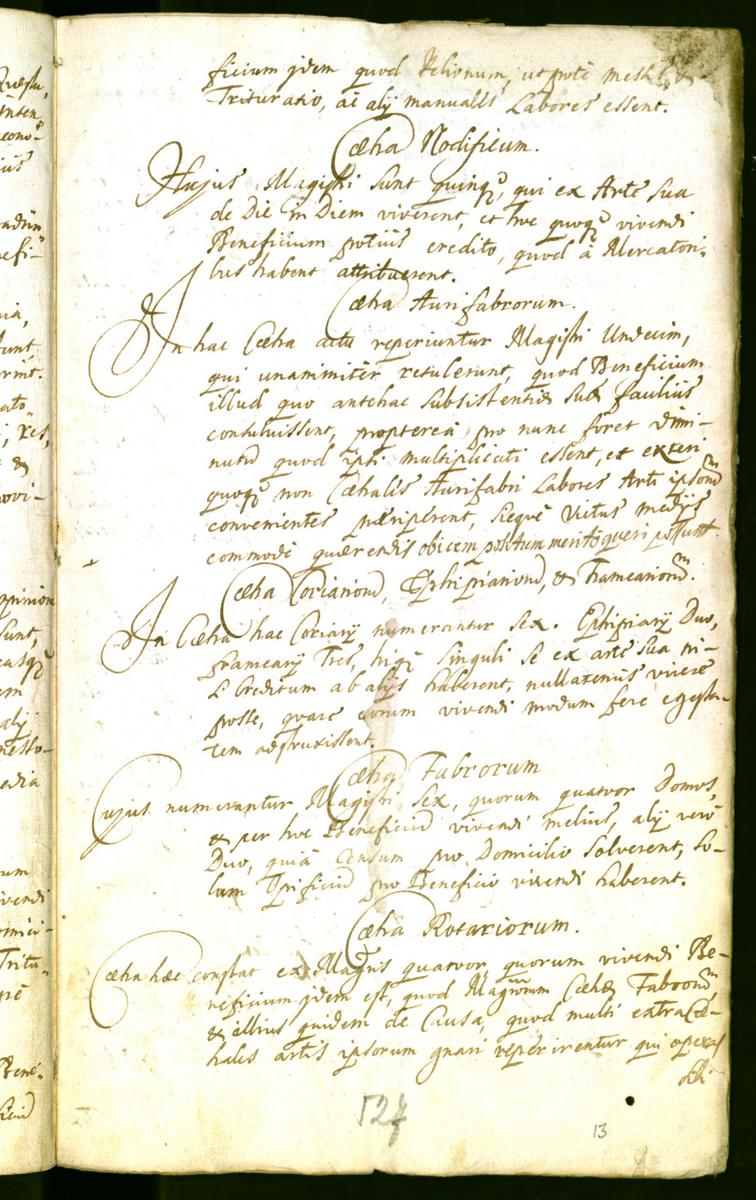 ficium jdem quod Pelionum, utpotè messis, &
Trituratio, ac alij manuales Labores essent.
Cæha Nodificum.
Hujus Magistri sunt quinq3, qui ex Arte sua
de Die in Diem viverent, et hoc quoq3 vivendi
Beneficium potius credito, quod à Mercatori-
bus habent attribuerent.
Cæha Aurifabrorum.
In hac Cæha actu reperiuntur Magistri Undecim,
qui unanimiter retulerunt, quod Beneficium
illud quo antehac subsistentiæ suæ facilius
consuluissent, propterea pro nunc foret dimi-
nutũ quod ipsi multiplicati essent, et exteri
quoq3 non Cæhales Aurifabri Labores Arti ipsorũ
convenientes præriperent, sicque Victus medijs
commodè quærendis obicem positum meritò queri possunt.
Cæha Coriariorũ, Ephipiariorũ, & Frameariorũ.
In Cæha hac Coriarij numerantur sex. Ephipiarij Duo,
frameary Tres, hiq3 singuli se ex arte sua ni-
si Creditum ab alijs haberent, nullatenus vivere
posse, quare eorum vivendi modum fere egesta-
tem adstruxissent.
Cæha Fabrorum
Cujus numerantur Magistri sex, quorum quatuor Domos,
& per hoc Beneficiũ vivendi melius, alij verò
Duo, quià Censum pro Domicilio solverent, so-
lum Opificiũ pro Beneficio vivendi haberent.
Cæha Rotariorum.
Cæha hæc constat ex Magris quatuor, quorum vivendi Be-
neficium jdem est, quod Magrorum Cæhæ Fabrorũ
& illius quidem de Causa, quod multi extra Cæ-
hales artis ipsorum gnari reperirentur qui operas
527
13